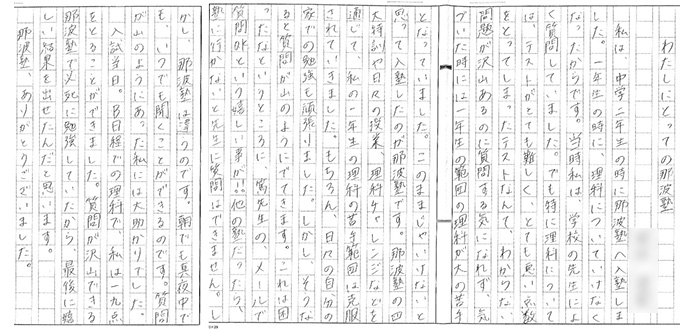 わたしにとっての那波塾
私は、中学二年生の時に那波塾へ入塾しま
した。一年生の時に、理科についていけなく
なったからです。当時私は、学校の先生によ
く質問していました。でも特に理科について
は、テストがとても難しく、とても悪い点数
をとってしまったテストなんて、わからない
問題が沢山あるのに質問する気になれず、気
づいた時には一年生の範囲の理科が大の苦手
となっていました。このままじゃいけないと
思って入塾したのが那波塾です。那波塾の四
大特訓や日々の授業、理科チャレンジなどを
通じて、私の一年生の理科の苦手範囲は克服
されていきました。もちろん、日々の自分の
家での勉強も頑張りました。しかし、そうな
ると質問が山のようにでてきます。これは困
ったなというところに、篤先生の、メールで
質問OKという嬉しい事が!!他の塾だったら、
塾に行かないと先生に質問はできません。し
かし、那波塾は違うのです。朝でも真夜中で
も、いつでも聞くことができるのです。質問
が山のようにあった私には大助かりでした。
入試当日。B日程での理科で、私は一九点
をとることができました。質問が沢山できる
那波塾で必死に勉強していたから、最後に嬉
しい結果を出せたんだと思います。
那波塾、ありがとうございました。